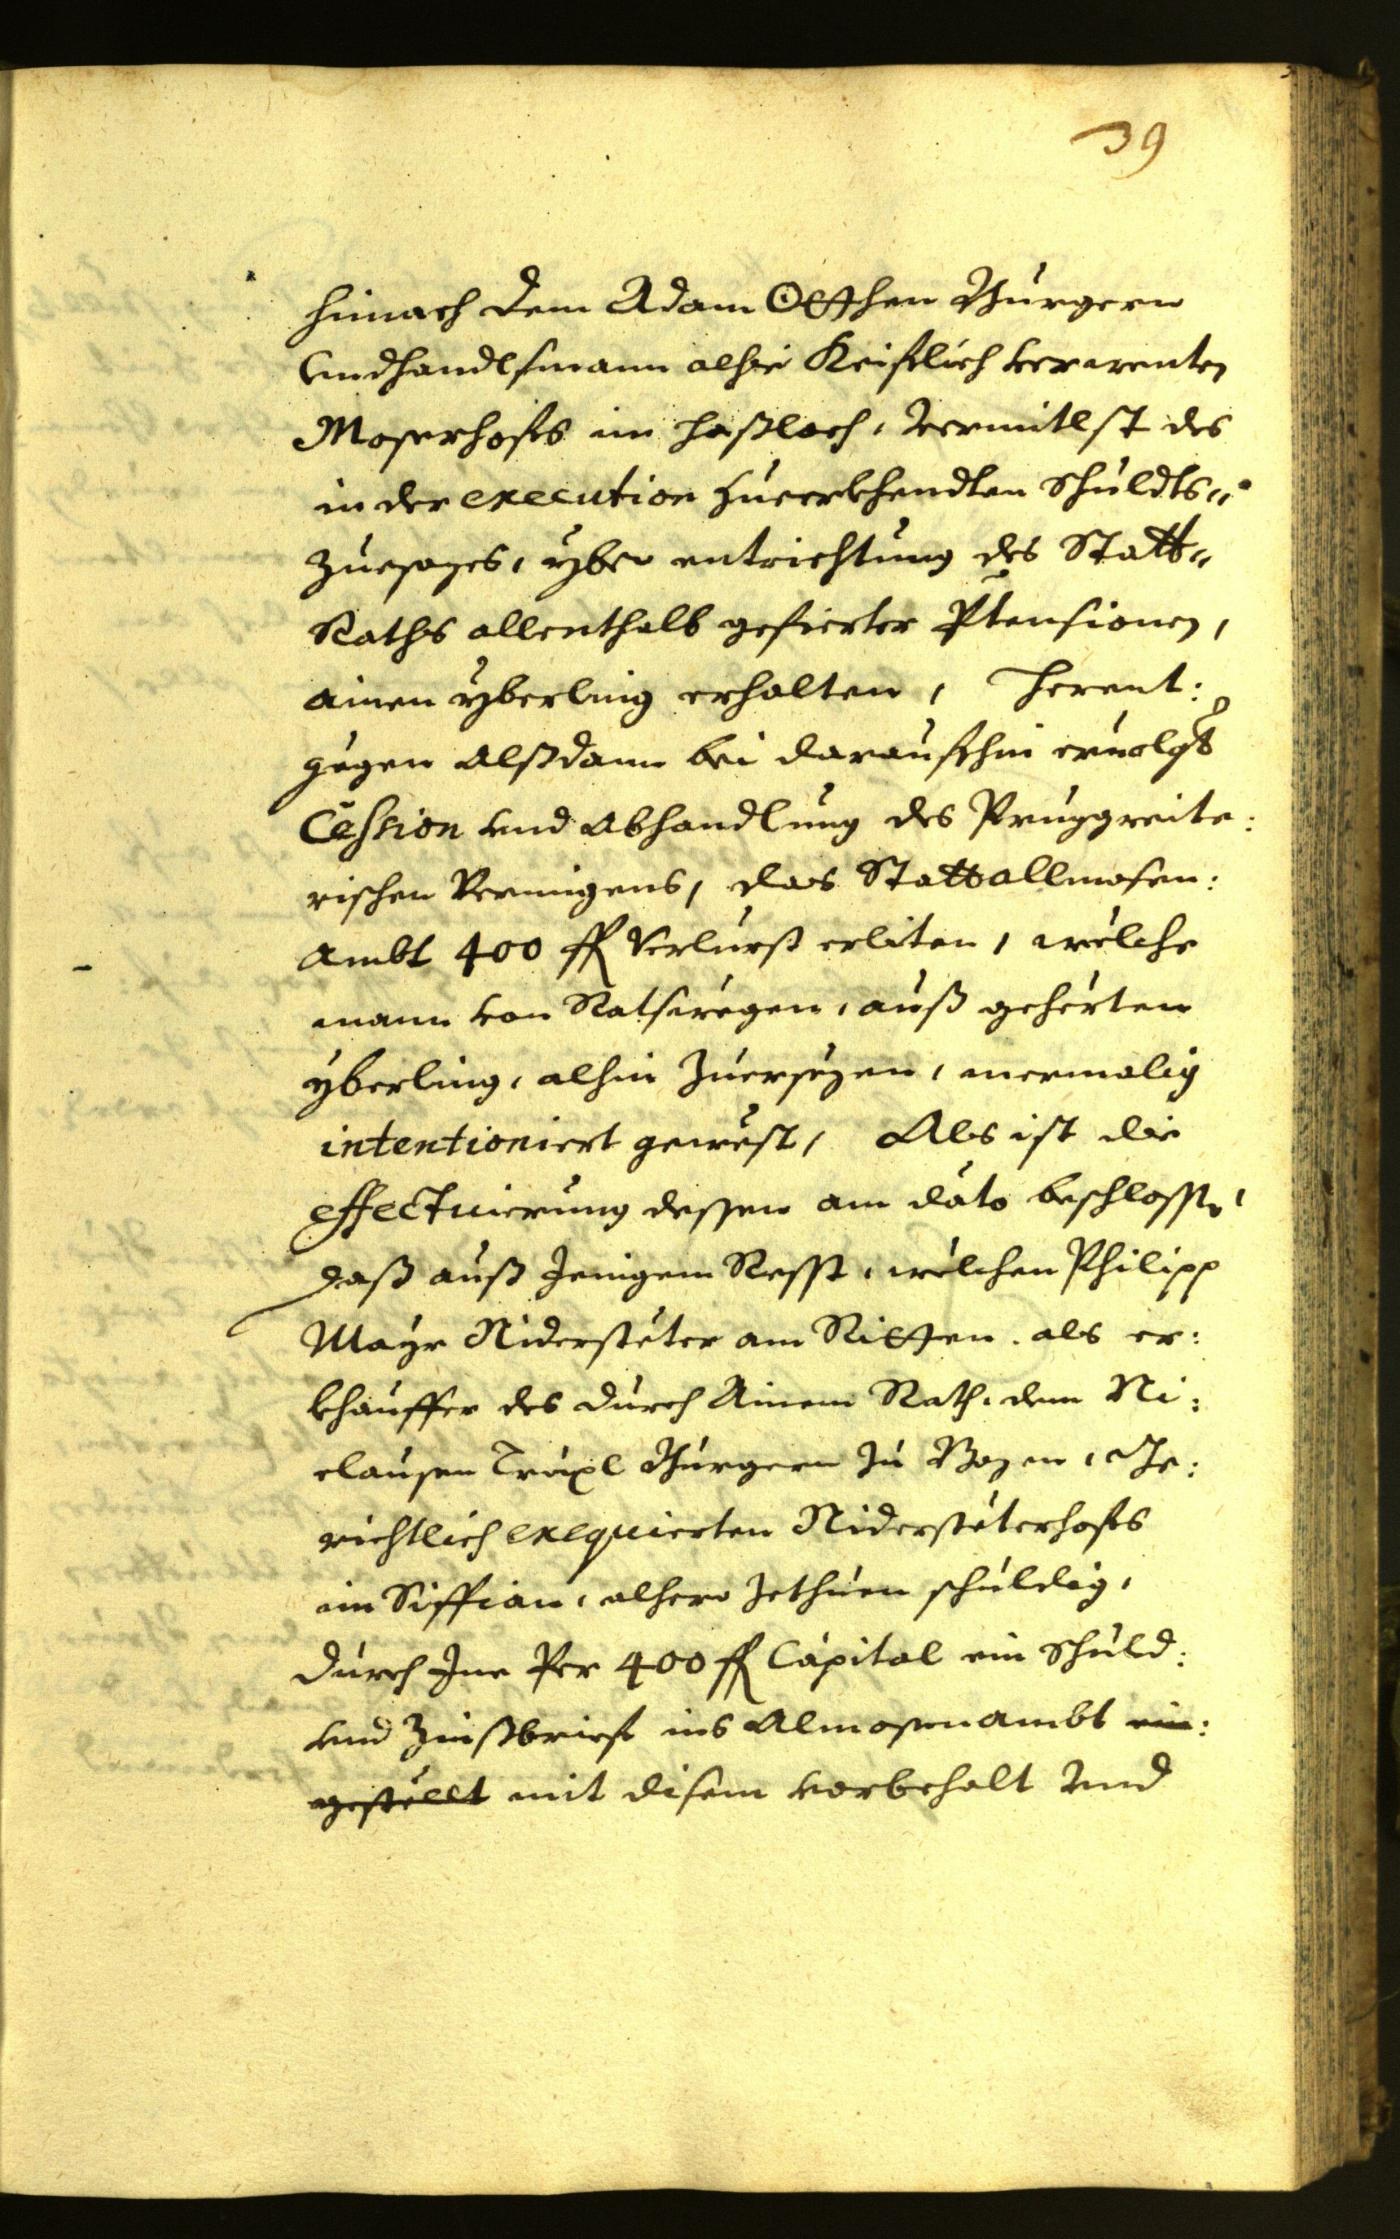 39
hinnach dem Adam Otthen Burgern
Undhandlsmann alhie Keiflich verarenten
Moserhofs im Haßlach, Vermitlst des
in der execution zuerkhendten Schuldts„
zuesazes, yber entrichtung des Statt„
Raths allenthalb gefierter Ptensionen,
ainen yberling erhalten, Herent:
gegen alßdann bei daraufhin ervolgt
Cession und Abhandlung des Pruggreite:
rischen Vermigens, das Stattallmosen:
Ambt 400 fl Verlurst erliten, welche
mann von Ratswegen, auß geherten
yberling, alhin zuersezen, mermalig
intentioniert gewest, Als ist die
effectuierung dessen am dato beschlossen,
daß auß Jenigem Resst, welchen Philipp
Mayr Niderstëter am Ritten als er:
khauffer des durch Ainem Rath, dem Ni:
clausen Bürgern zu Bozen, Ge:
richtlich exequierten Niderstëterhofs
im Siffian, alhero zethuen schuldig,
durch Jne Per 400 fl Capital ein Schuld:
und Zinßbrief ins Almosenambt ein:
gestellt mit disem vorbehalt Und